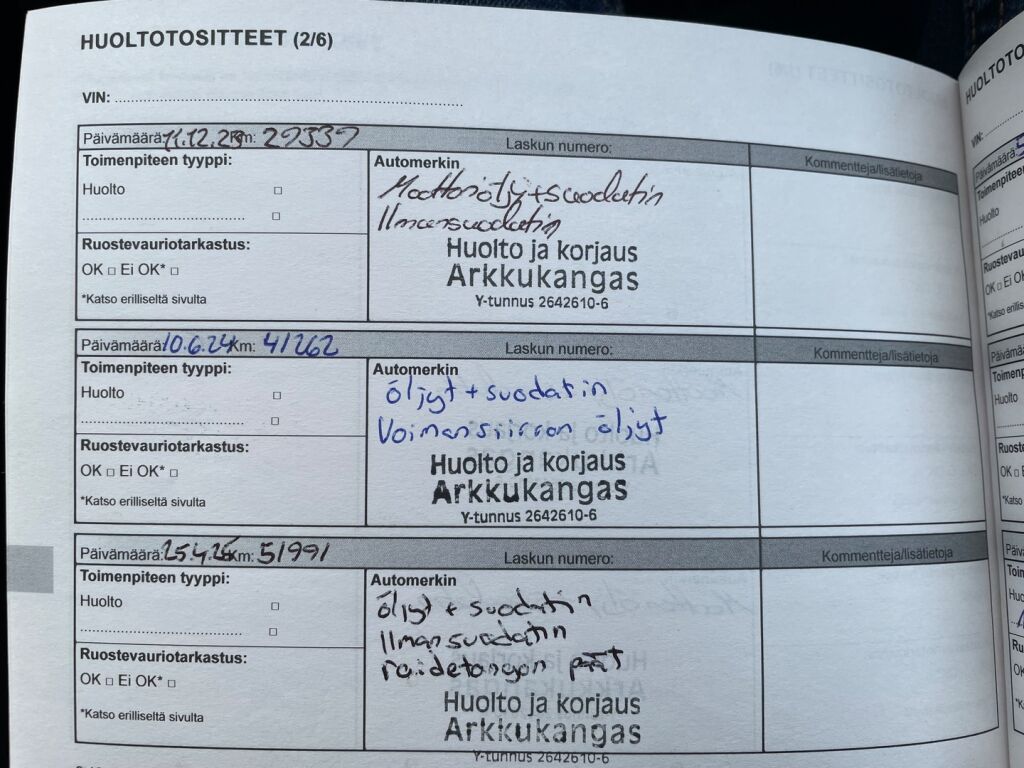 HUOLTOTOSITTEET (2/6)
VIN:
Päivämäärä: 11.12.23 Km: 29339 Laskun numero: Kommentteja/lisätietoja
Toimenpiteen tyyppi:
Huolto □
□
Ruostevauriotarkastus:
OK □ Ei OK* □
*Katso erilliseltä sivulta
Automerkin
Moottoriöljy+suodatin
Ilmansuodatin
Huolto ja korjaus
Arkkukangas
Y-tunnus 2642610-6
Päivämäärä: 10.6.24 Km: 41262 Laskun numero: Kommentteja/lisätietoja
Toimenpiteen tyyppi:
Huolto □
□
Ruostevauriotarkastus:
OK □ Ei OK* □
*Katso erilliseltä sivulta
Automerkin
öljyt + suodatin
Voimansiirron öljyt
Huolto ja korjaus
Arkkukangas
Y-tunnus 2642610-6
Päivämäärä: 25.4.25 Km: 51991 Laskun numero: Kommentteja/lisätietoja
Toimenpiteen tyyppi:
Huolto □
□
Ruostevauriotarkastus:
OK □ Ei OK* □
*Katso erilliseltä sivulta
Automerkin
öljyt + suodatin
Ilmansuodatin
raidetangon päät
Huolto ja korjaus
Arkkukangas
Y-tunnus 2642610-6
HUOLTOTO
VIN:
Päivämäärä:
Toimenpiteen
Huolto
Ruostevau
OK □ Ei OK
*Katso erillise